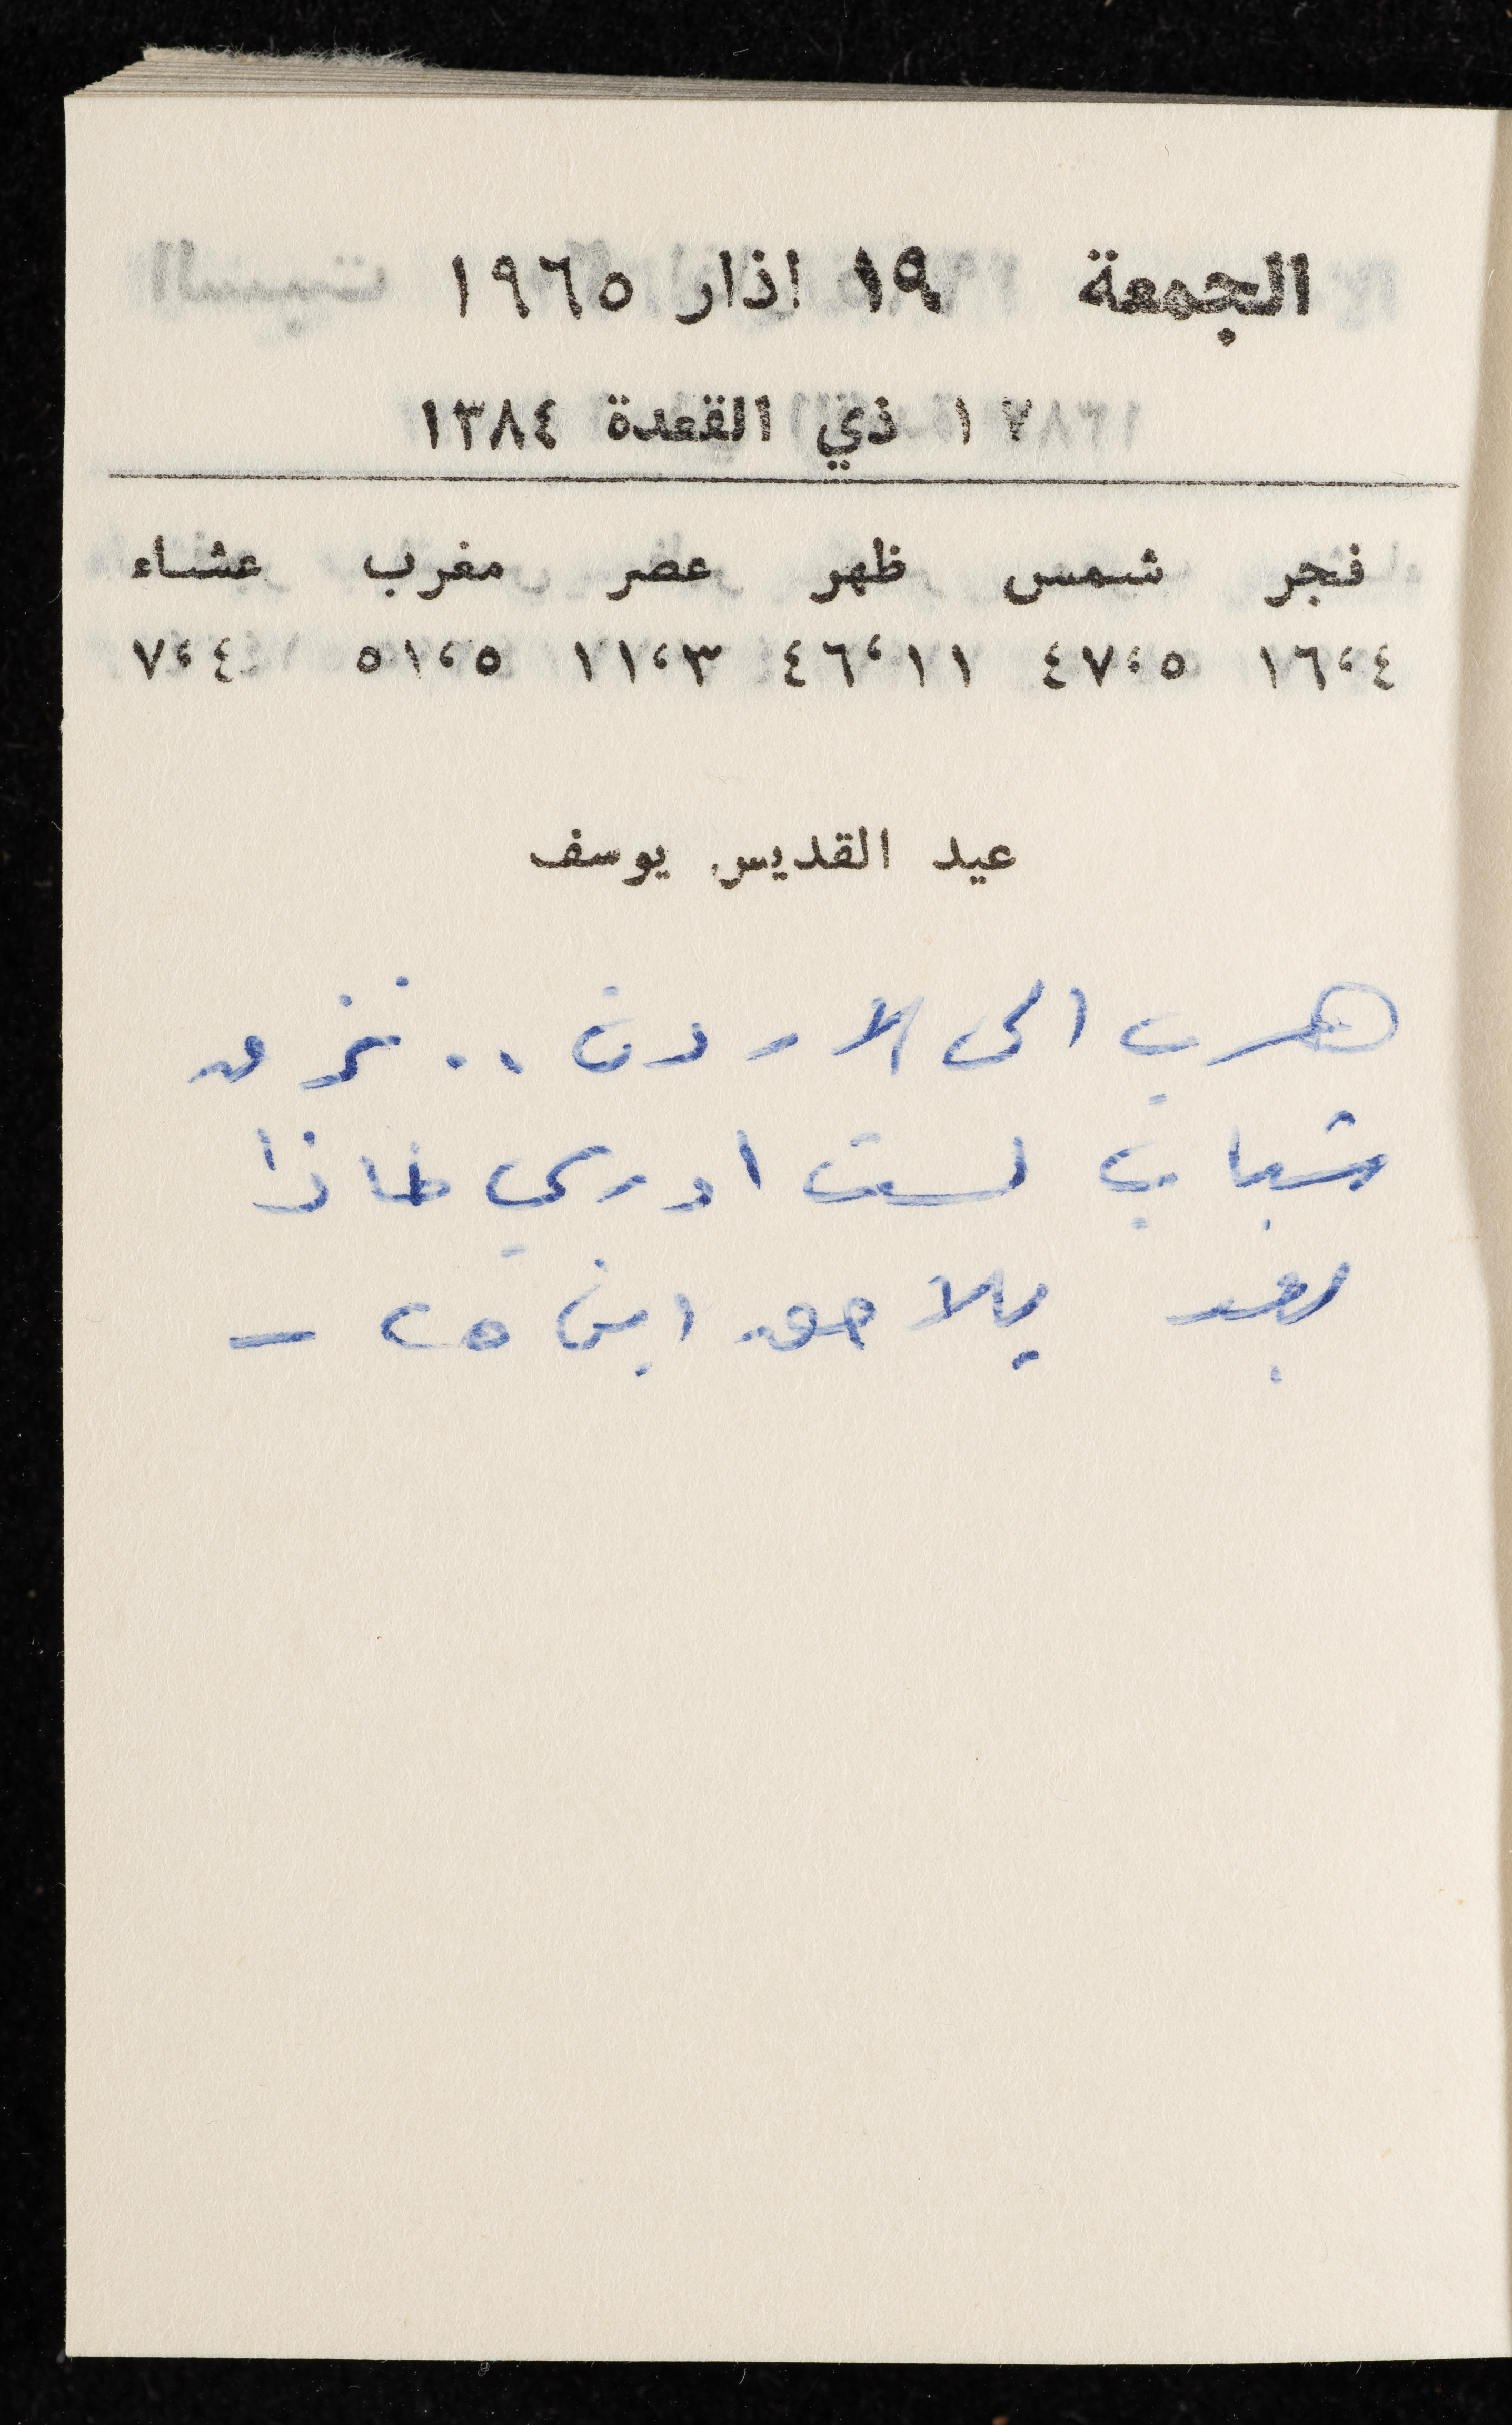 الجمعة ١٩ اذار ١٩٦٥
١٧ ذي القعدة ١٣٨٤
فجر شمس ظهر عصر مغرب عشاء
١٦،٤ ٤٧،٥ ٤٦،١١ ١١،٣ ٥١،٥ ٧،٤
عيد القديس يوسف
هرب الى الاردن ..
شباب لست ادري لماذا
بعد يلاحق ابن ٢٥ –